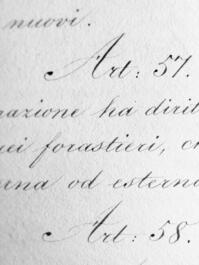 nuovi.
Art: 57.
razione ha dirit
uei forastieri, ch
erna od esterna
Art: 58.